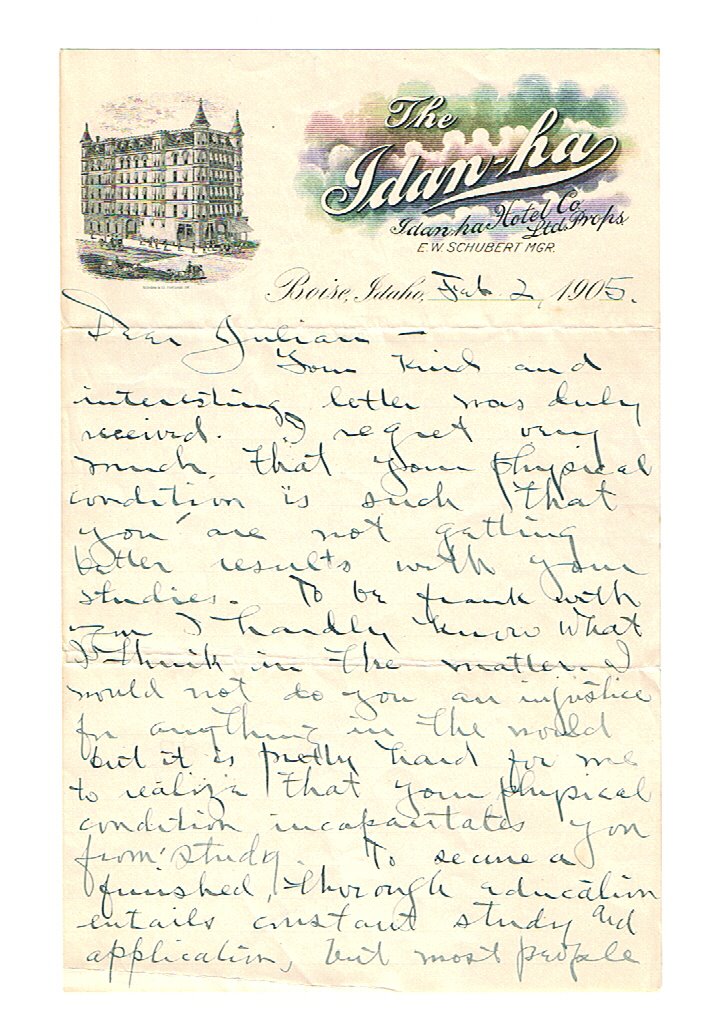 The
Idan-ha
Idan-ha Hotel Co.
Ltd. Props
E.W. SCHUBERT MGR.
Boise, Idaho, Feb 2, 1905.
Dear Julian —
Your kind and
interesting letter was duly
received. I regret very
much that your physical
condition is such that
you are not getting
better results with your
studies. To be frank with
you I hardly know what
to think in the matter. I
would not do you an injustice
for anything in the world
but it is pretty hard for me
to realize that your physical
condition incapacitates you
from study. To secure a
finished, thorough education
entails constant study and
application, but most people